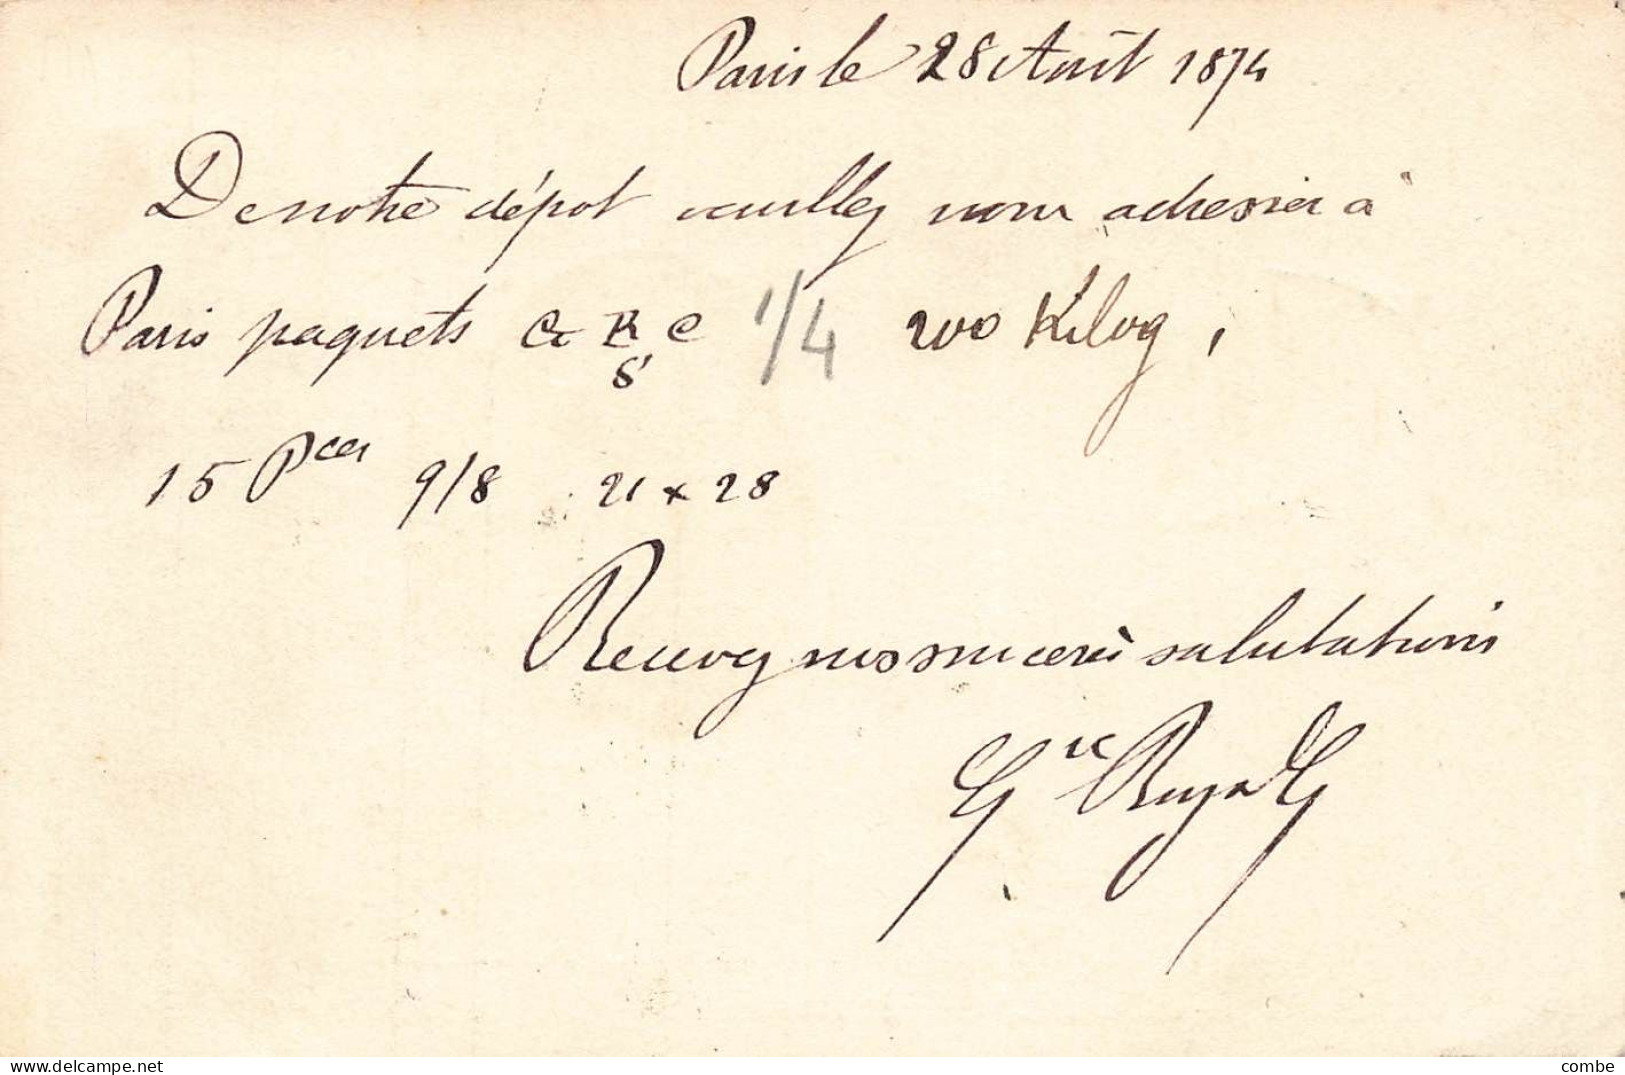 Paris le 28 Août 1874
De notre dépôt veuillez nous adresser à
Paris paquets C R C 1/4 200 Kilog,
S
15 Pces 9/8 21 x 28
Recevez nos sincères salutations
www.delcampe.net
combe